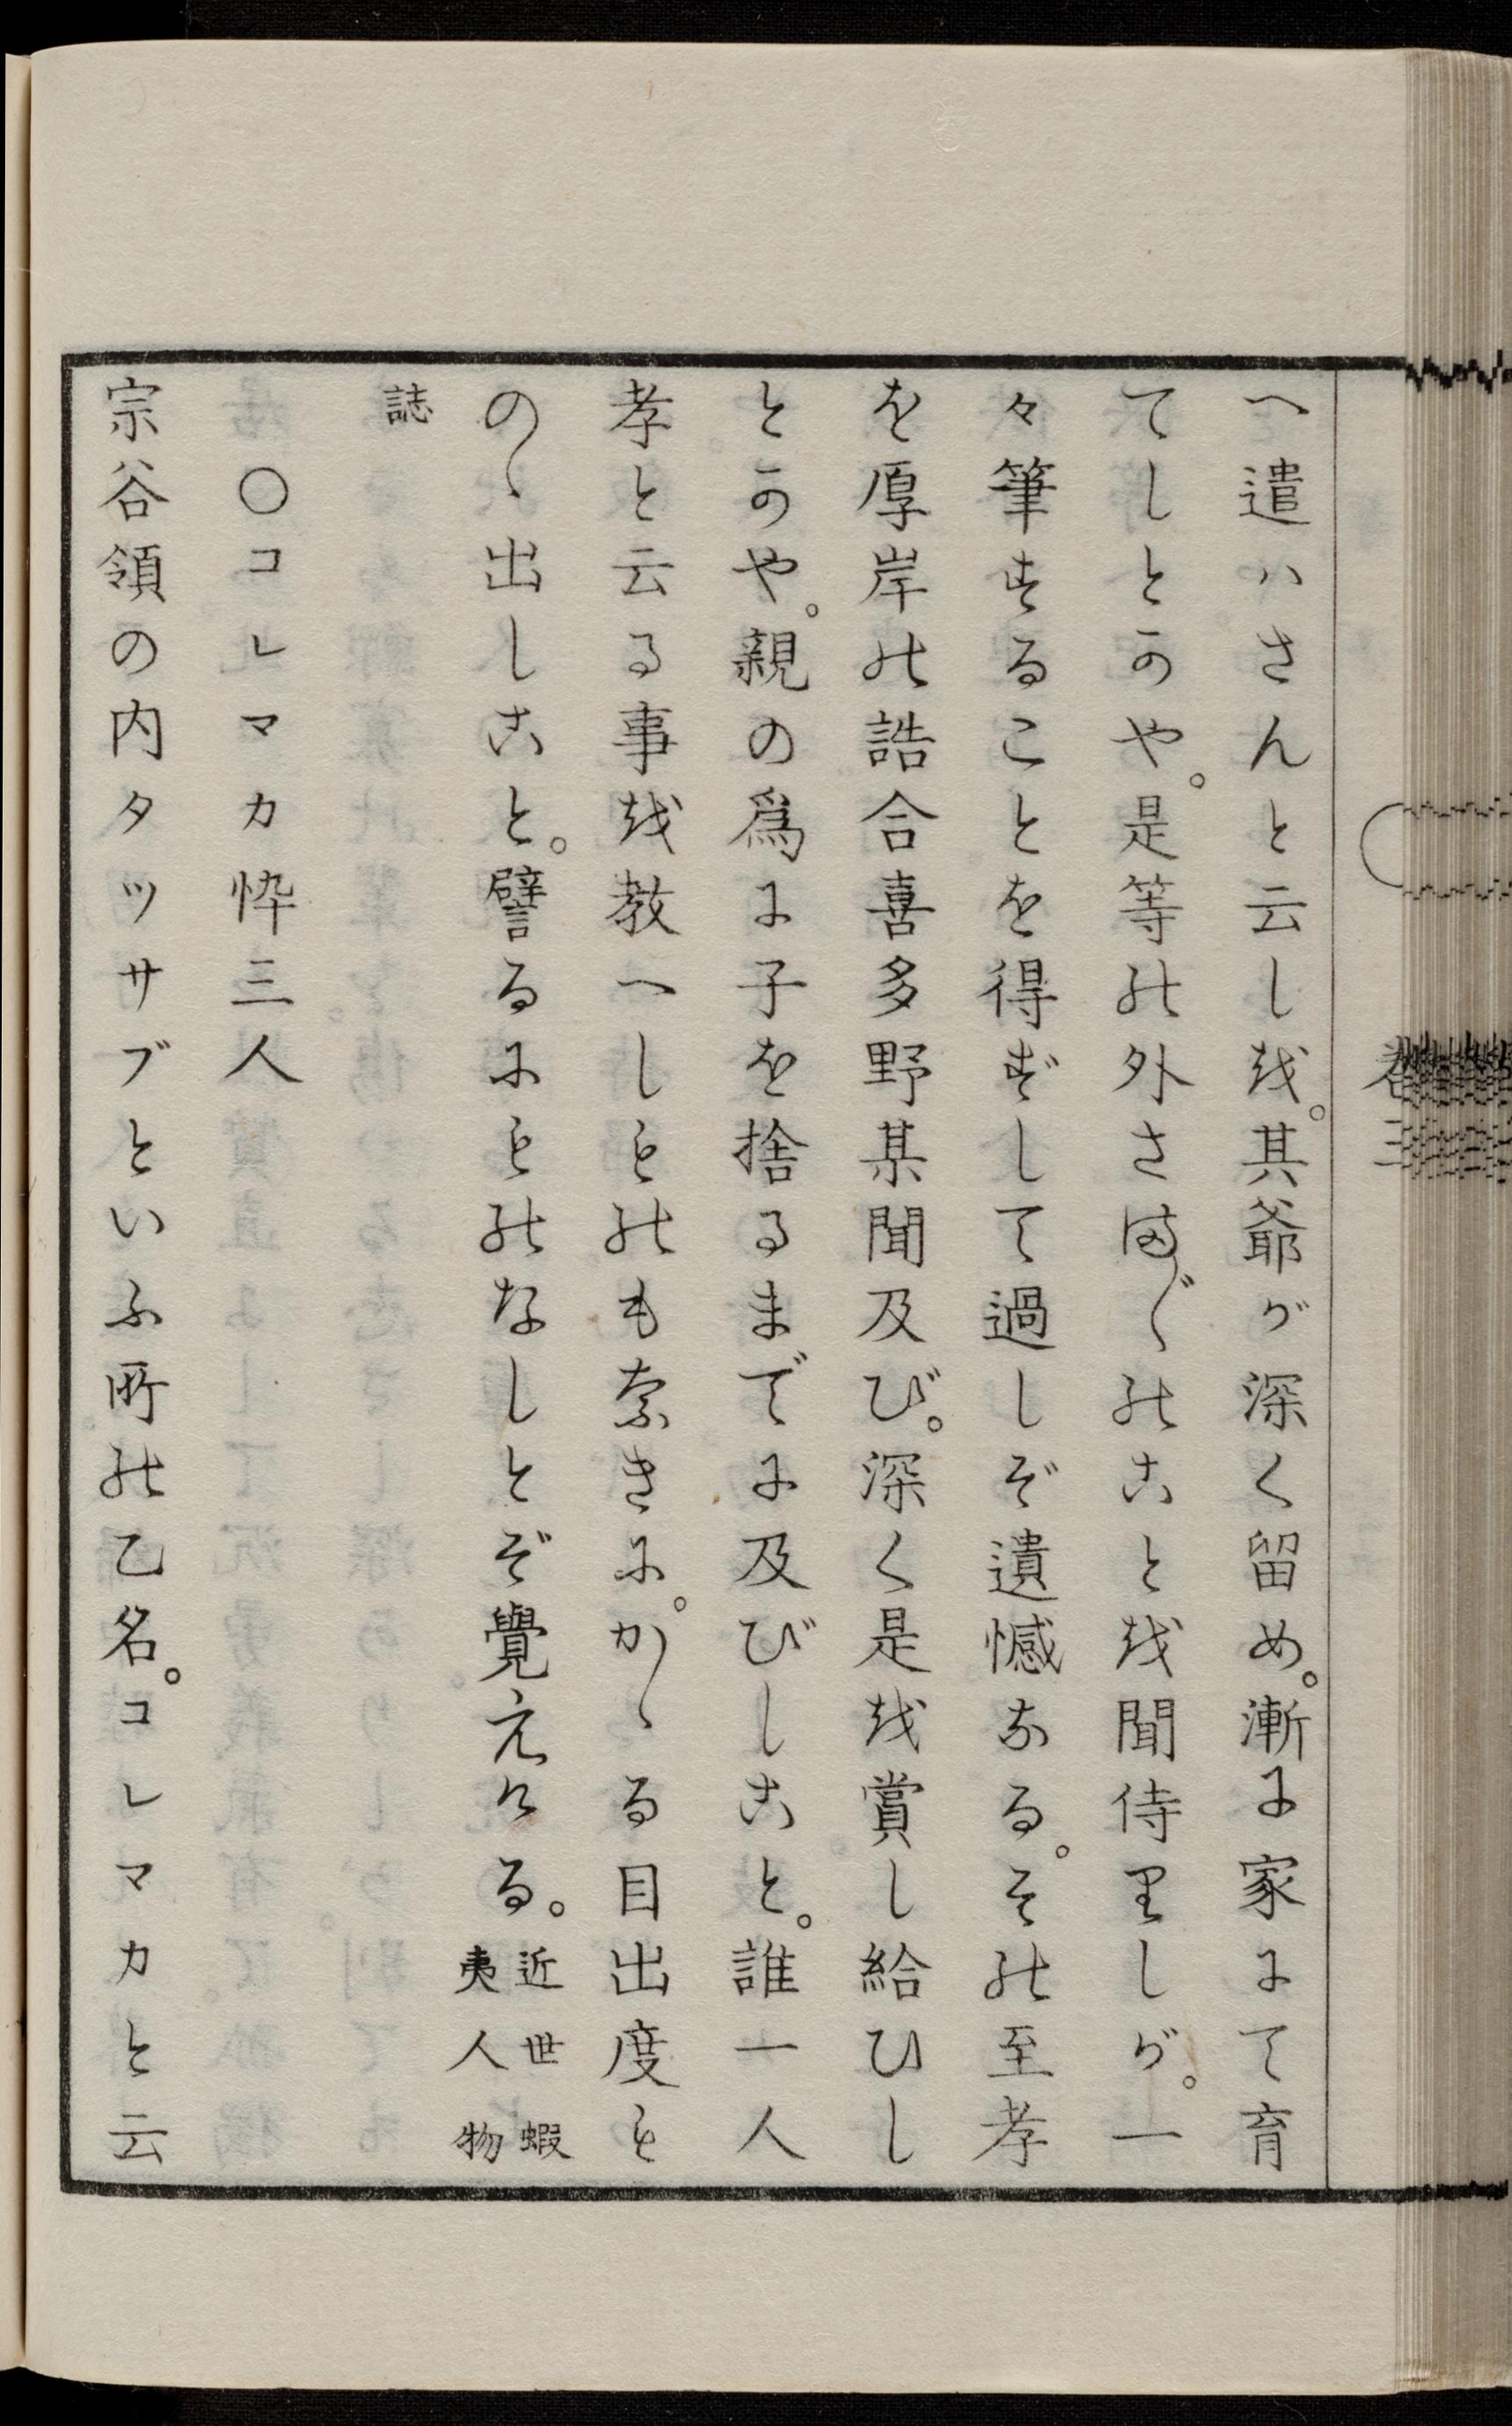 へ遣ハさんと云しを。其爺が深く留め。漸に家にて育
てしとかや。是等の外さま〴〵のことを聞侍りしが。一
々筆することを得ずして過しぞ遺憾なる。その至孝
を厚岸の誥合喜多野某聞及び。深く是を賞し給ひし
とかや。親の為に子を捨るまでに及びしこと。誰一人
孝と云る事を教へしものも奈きに。かゝる目出度も
のゝ出しこと。譬るにものなしとぞ覺えける。近世蝦夷人物
誌
○コレマカ忰三人
宗谷領の内タツサブといふ所の乙名。コレマカと云